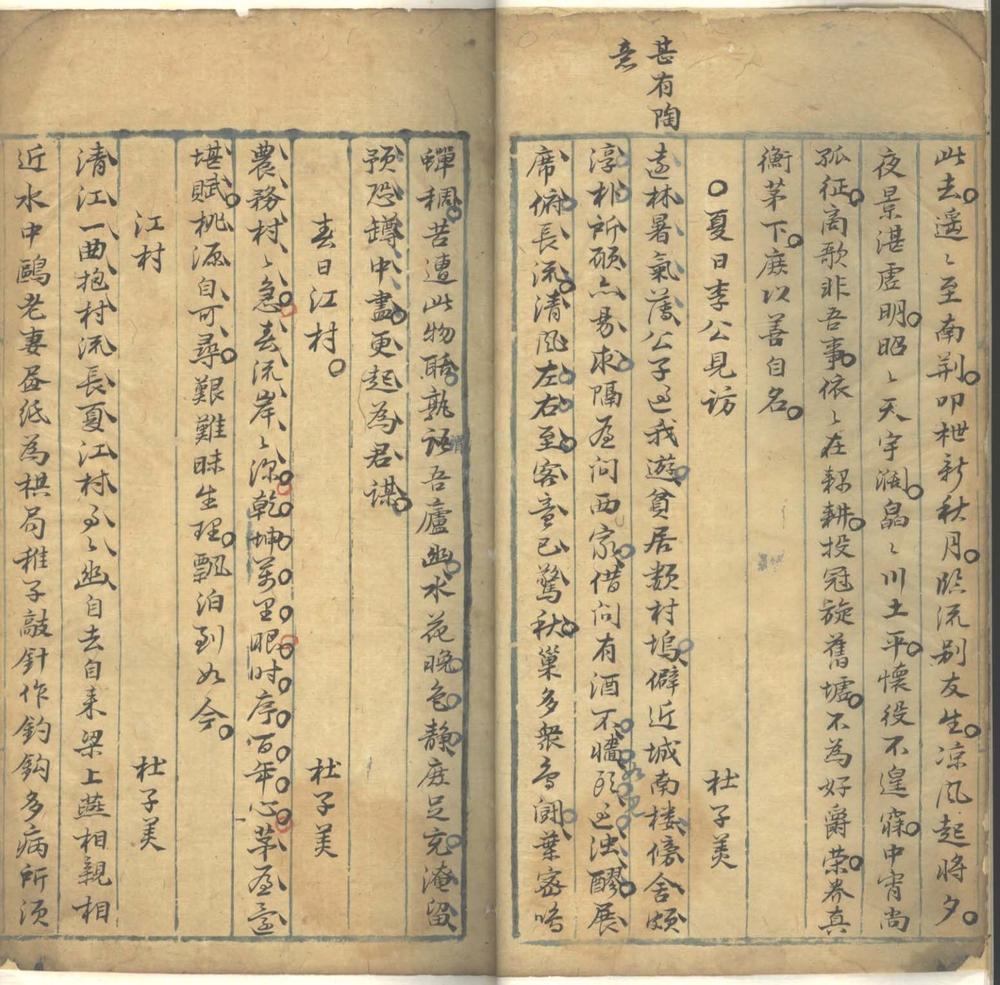 甚有陶
意
此去遥〻至南荆叩枻新秋月臨流别友生凉風起將夕
夜景湛虚明昭〻天宇濶皛〻川土平懷役不遑寐中宵尚
孤征商歌非吾事依〻在耦耕投冠旋舊墟不為好爵荣养真
衡茅下庶以善自名
夏日李公見访 杜子美
遠林暑氣薄公子过我遊貧居類村塢僻近城南楼傍舍頗
淳朴所願亦易求隔屋问西家借问有酒不墙頭过浊醪展
席俯長流清風左右至客意已驚秋巢多衆鸟闹葉密鳴
蟬稠苦遭此物聒孰语吾廬幽水花晚色静庶足充淹留
预恐罇中盡更起為君谋
春日江村 杜子美
農務村〻急春流岸〻深乾坤萬里眼时序百年心茅屋還
堪賦桃源自可尋艱難昧生理飄泊到如今
江村 杜子美
清江一曲抱村流長夏江村事〻幽自去自来梁上燕相親相
近水中鷗老妻昼紙為棋局稚子敲針作釣鈎多病所须